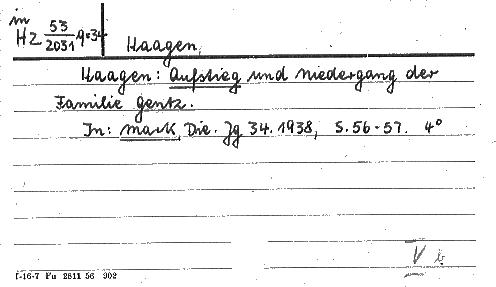 in
HZ 53/2031 9=34
Haagen,
Haagen: Aufstieg und Niedergang der
Familie Gentz.
In: Mark, Die. Jg 34. 1938, S. 56-57. 4°
V b
f-16-7 Fu 2811 56 902